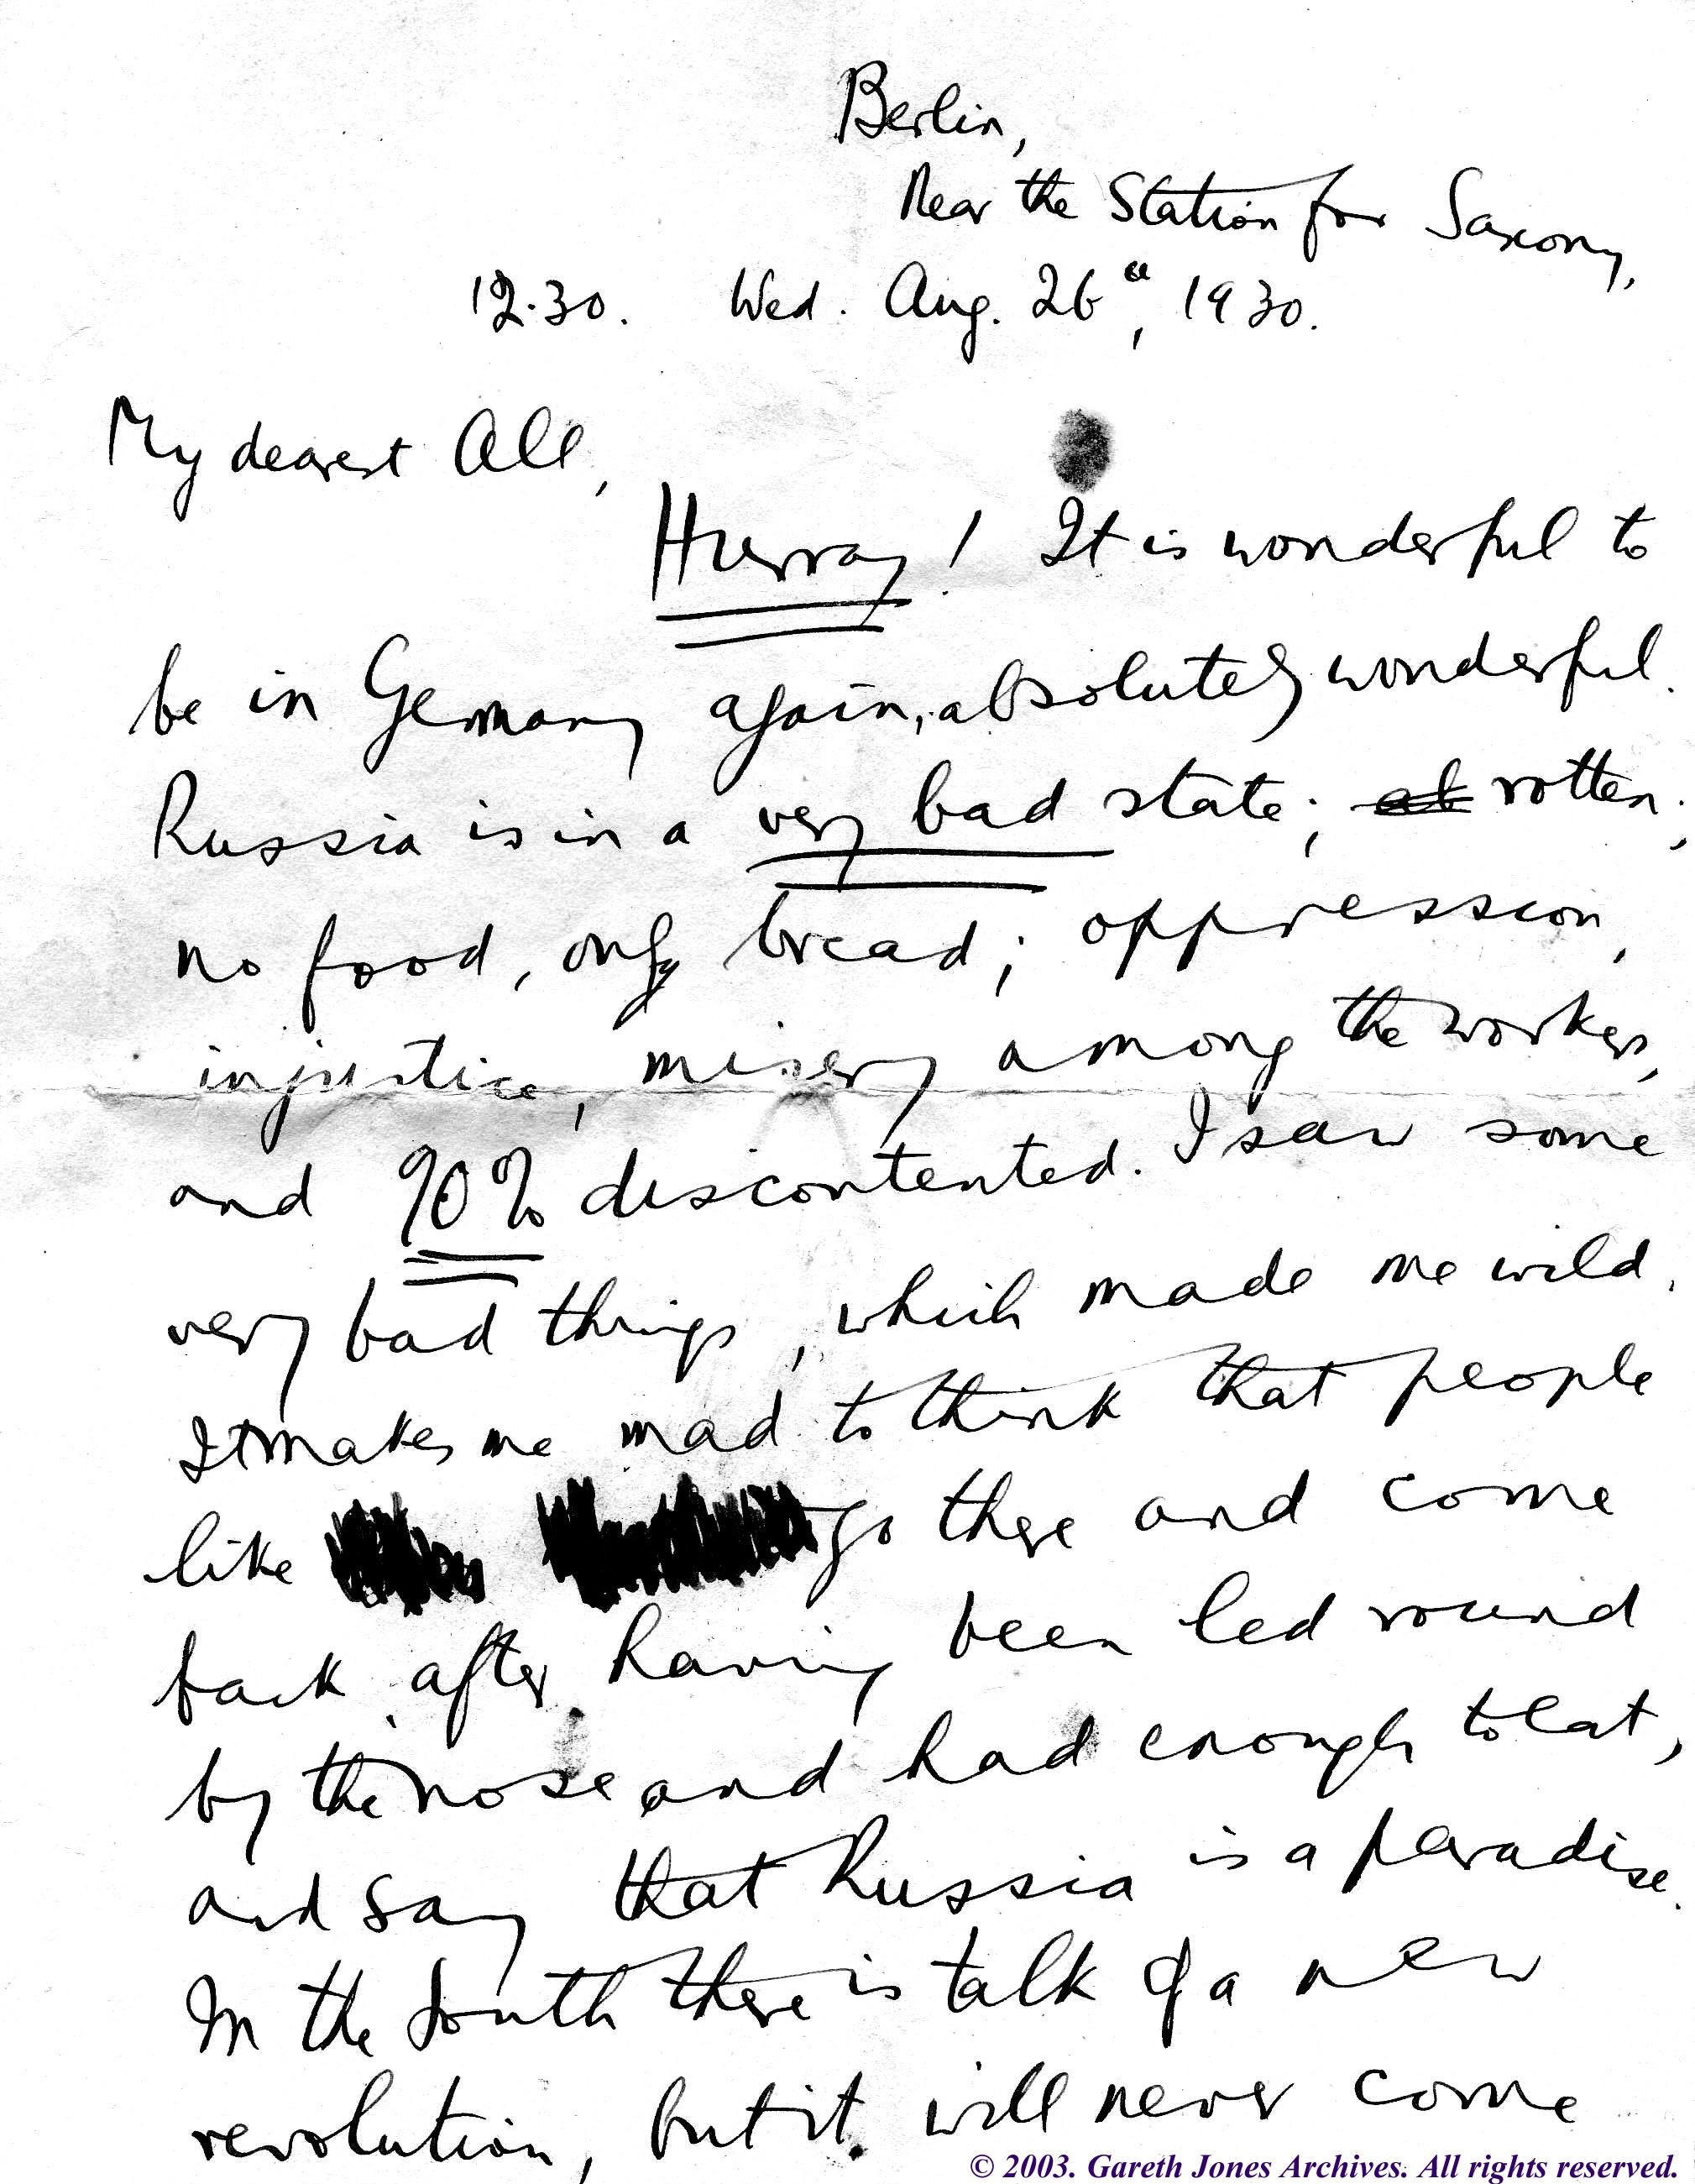 Berlin,
Near the Station for Saxony,
12.30. Wed. Aug. 26th, 1930.
My dearest All,
Hurray! It is wonderful to
be in Germany again, absolutely wonderful.
Russia is in a very bad state; rotten;
no food, only bread; oppression,
injustice, misery among the workers,
and 90% discontented. I saw some
very bad things, which made me wild.
It makes me mad to think that people
like go there and come
back, after having been led round
by the nose and had enough to eat,
and say that Russia is a paradise.
In the South there is talk of a new
revolution, but it will never come
© 2003. Gareth Jones Archives. All rights reserved.